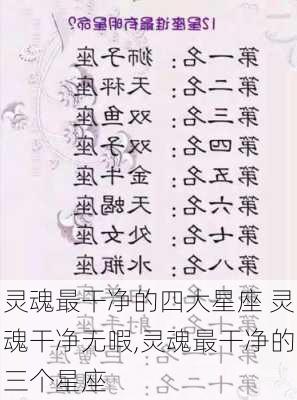 12星座谁最有明星命?
第一名：狮子座
第二名：天秤座
第三名：双鱼座
第四名：双子座
第五名：金牛座
第六名：天蝎座
第七名：处女座
第八名：水瓶座
灵魂最干净的四大星座 灵
魂干净无暇,灵魂最干净的
三个星座